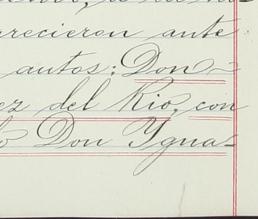 recieron ante
autos: Don
ez del Rio, con
Don Ygna-